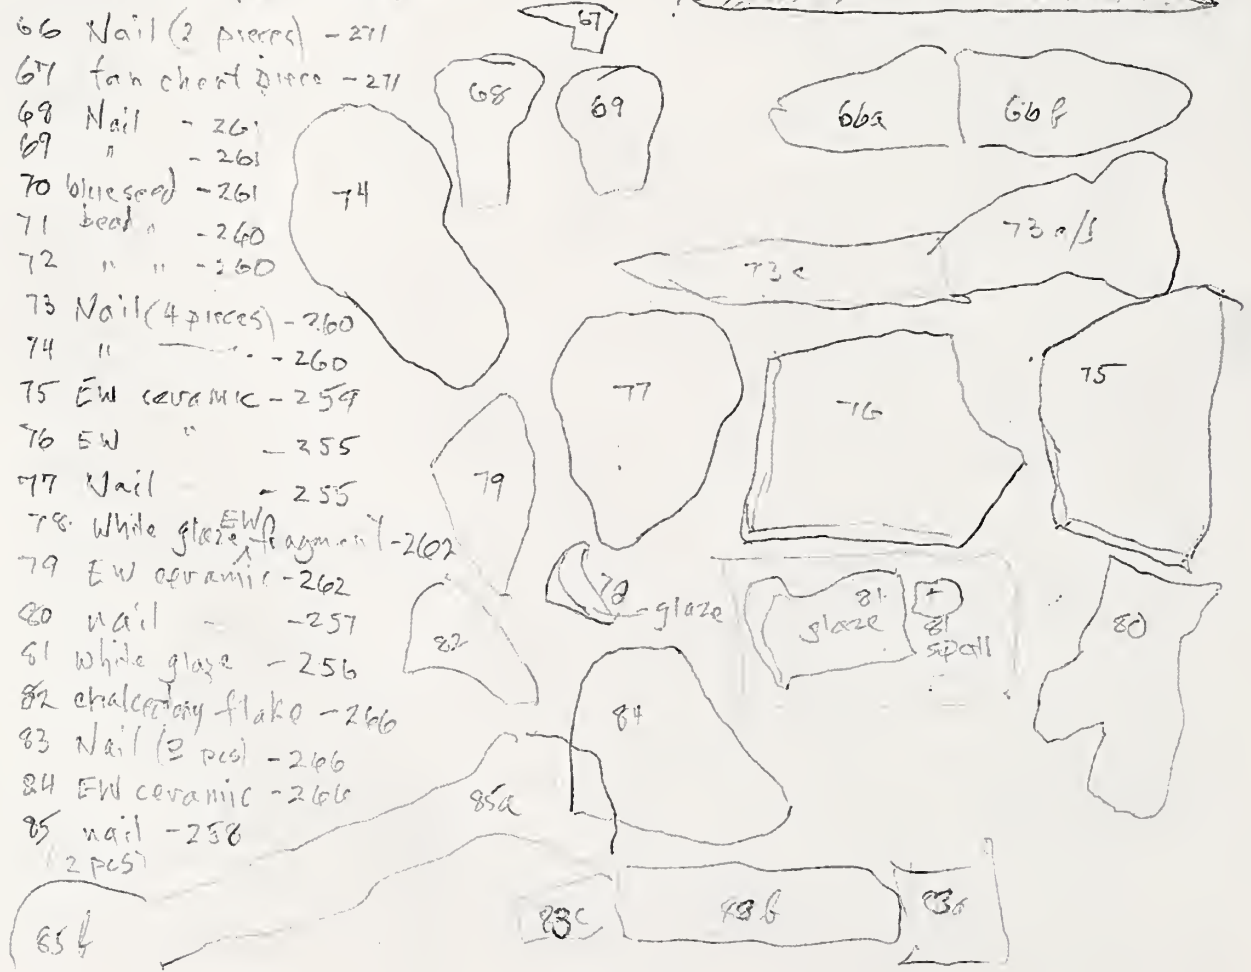 66 Nail (2 pieces) - 271
67 tan chert piece - 271
68 Nail - 261
69 " - 261
70 blue seed - 261
71 bead " - 260
72 " " - 260
73 Nail (4 pieces) - 260
74 " - 260
75 EW ceramic - 259
76 EW " - 255
77 Nail - 255
78 White glaze EW fragment - 262
79 EW ceramic - 262
80 nail - 257
81 white glaze - 256
82 chalcedony flake - 266
83 Nail (3 pcs) - 266
84 EW ceramic - 266
85 nail - 258
(2 pcs)
67
68
69
66a
66b
74
73a/b
73c
77
76
75
79
78
glaze
81
glaze
81
spall
80
82
84
85a
83c
83b
83a
85b